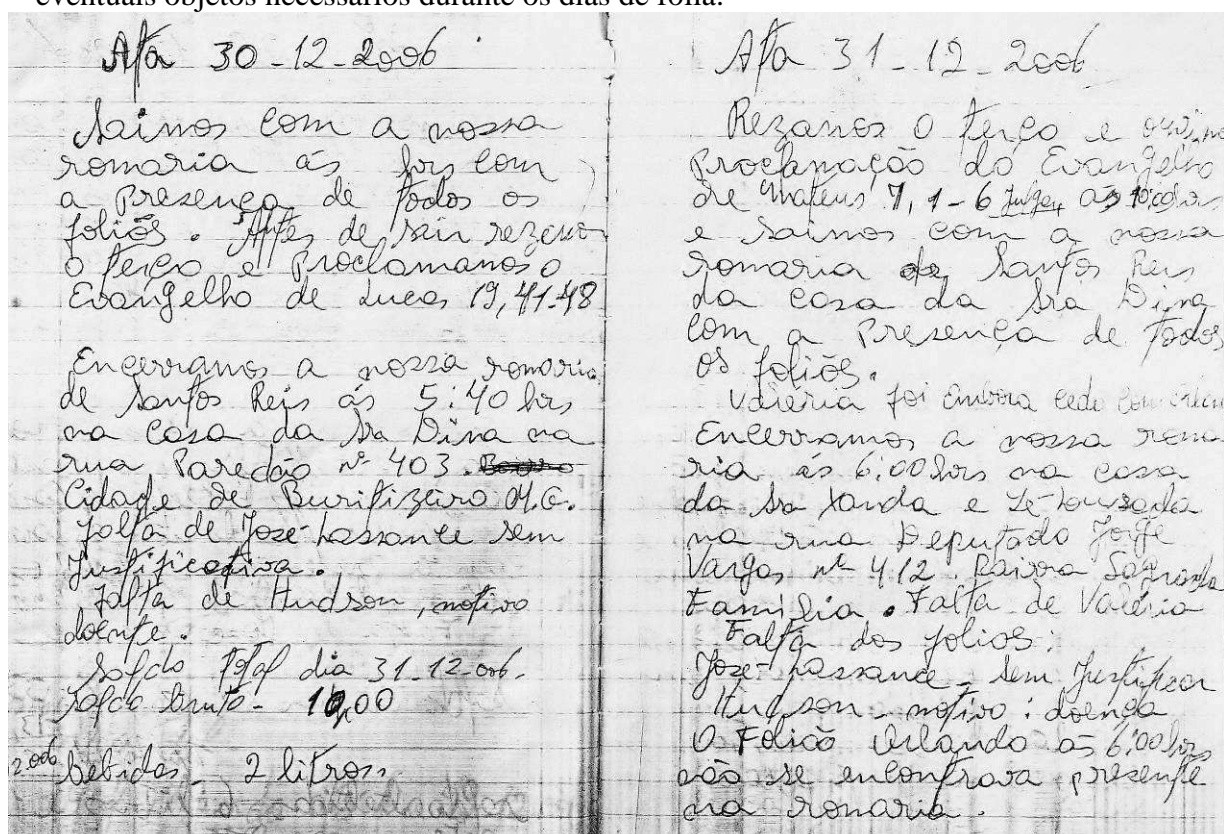 eventuais objetos necessários durante os dias de folia.
Ata 30-12-2006
Saimos com a nossa
romaria ás hrs com
a Presença de todos os
foliões. Antes de sair rezamos
o terço e Proclamamos o
Evangelho de Lucas 19,41-48
Encerramos a nossa romaria
de Santos Reis ás 5:40 hrs
na casa da Sra Dina na
rua Paredão nº 403.
Cidade de Buritizeiro M.G.
Falta de José Lassance sem
Justificativa.
Falta de Hudson, motivo
doente.
Saldo total dia 31-12-006.
Saldo bruto - 10,00
2.006 Bebidas - 2 litros
Ata 31-12-2006
Rezamos o terço e
Proclamação do Evangelho
de Mateus 7,1-6 ás
e Saimos com a nossa
romaria de Santos Reis
da casa da Sra Dina
com a Presença de todos
os foliões.
Valéria foi embora cedo com
Encerramos a nossa roma
ria ás 6:00 hrs na casa
da Sra Xanda e Zé
na rua Deputado Jorge
Vargas nº 412. Bairro Sagrada
Família. Falta de Valéria
Falta dos foliões:
José Lassance - sem Justificar
Hudson - motivo: doença
O Folião Orlando ás 6:00 hrs
não se encontrava presente
na romaria.